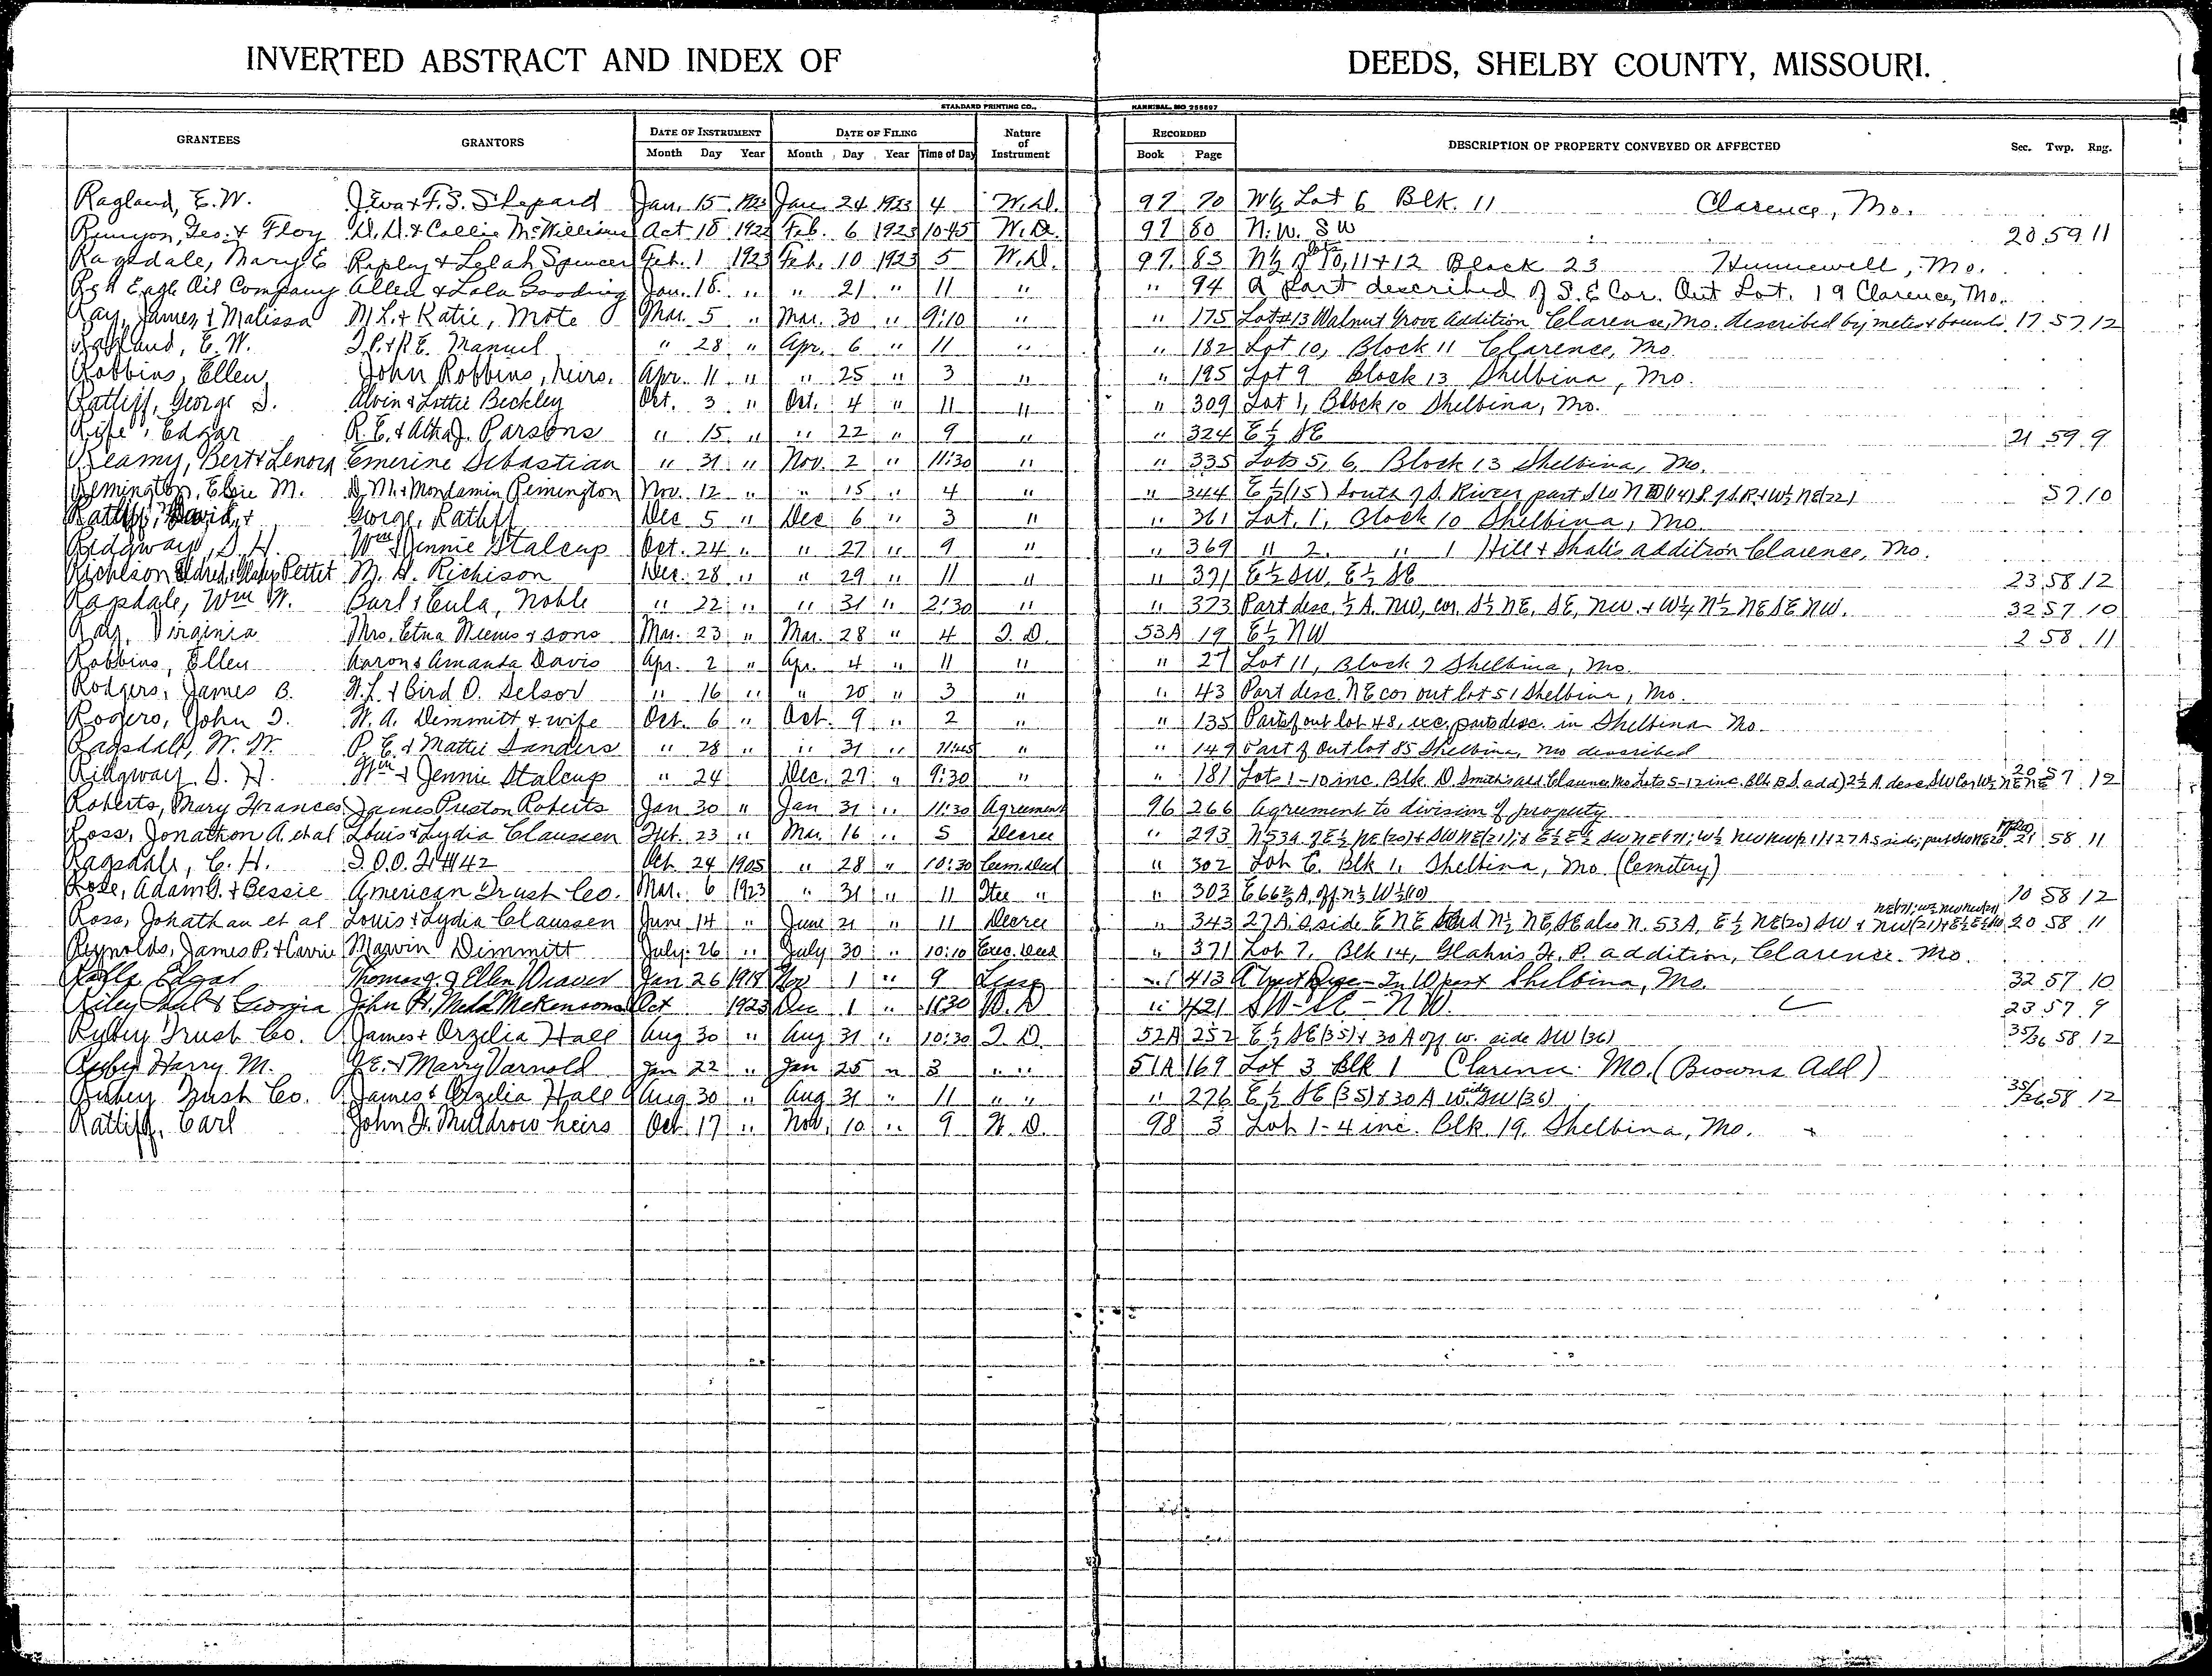 INVERTED ABSTRACT AND INDEX OF DEEDS, SHELBY COUNTY, MISSOURI.
STANDARD PRINTING CO., HANNIBAL, MO 255697
GRANTEES GRANTORS DATE OF INSTRUMENT DATE OF FILING Nature of Instrument RECORDED DESCRIPTION OF PROPERTY CONVEYED OR AFFECTED Sec. Twp. Rng.
Month Day Year Month Day Year Time of Day Book Page
Ragland, E.W. & F.S. Shepard Jan. 15 1923 Jan. 24 1923 4 W.D. 97 70 W½ Lot 6 Blk. 11 Clarence, Mo.
Runyon, Geo. & Floy D.D. & Callie McWilliams Oct 18 1922 Feb. 6 1923 10:45 W.D. 97 80 N.W. SW 20 59 11
Ragsdale, Mary E Ripley & Lelah Spencer Feb. 1 1923 Feb. 10 1923 5 W.D. 97 83 N½ of lots 10, 11 & 12 Block 23 Hunnewell, Mo.
Red Eagle Oil Company Allen & Lola Gooding Jan. 18 " " 21 " 11 " " 94 a part described of S.E Cor. Out Lot. 19 Clarence, Mo.
Ray, James & Malissa M L. & Katie, Mote Mar. 5 " Mar. 30 " 9:10 " " 175 Lot #13 Walnut Grove Addition Clarence, Mo. described by metes & bounds 17 57 12
Ragland, E.W. & R.E. Manuel " 28 " Apr. 6 " 11 " " 182 Lot 10, Block 11 Clarence, Mo.
Robbins, Ellen John Robbins, heirs. Apr. 11 " " 25 " 3 " " 195 Lot 9 Block 13 Shelbina, Mo.
Ratliff, George S. Alvin & Lottie Beckley Oct. 3 " Oct. 4 " 11 " " 309 Lot 1, Block 10 Shelbina, Mo.
Rife, Edgar R. E. & Altha J. Parsons " 15 " " 22 " 9 " " 324 E½ SE 21 59 9
Reamy, Bert & Lenora Emerine Sebastian " 31 " Nov. 2 " 11:30 " " 335 Lots 5, 6, Block 13 Shelbina, Mo.
Remington, Elsie M. D. M. & Mondamin Remington Nov. 12 " " 15 " 4 " " 344 E½ (15) South of S. River part 57 10
Ratliff, David, & Gorge, Ratliff Dec 5 " Dec 6 " 3 " " 361 Lot. 1, Block 10 Shelbina, Mo.
Ridgway, S. H. Wm & Jennie Stalcup Oct. 24 " " 27 " 9 " " 369 " 2. " 1 Hill & addition Clarence, Mo.
Richison Eldred & Gladys Pettet M. D. Richison Dec. 28 " " 29 " 11 " " 371 E½ SW, E½ SE 23 58 12
Ragsdale, Wm W. Burl & Eula, Noble " 22 " " 31 " 2:30 " " 373 Part desc. ½ A. NW, cor. S½ NE, SE, NW. & W¼ N½ NE SE NW. 32 57 10
Ray, Virginia Mrs. Etna & sons Mar. 23 " Mar. 28 " 4 T.D. 53A 19 E½ NW 2 58 11
Robbins, Ellen Aaron & Amanda Davis Apr. 2 " Apr. 4 " 11 " " 27 Lot 11, Block 7 Shelbina, Mo.
Rodgers, James B. W.L. & Bird O. Selsor " 16 " " 20 " 3 " " 43 Part desc. NE cor out lot 51 Shelbina, Mo.
Rogers, John T. W. A. Dimmitt & wife Oct. 6 " Oct. 9 " 2 " " 135 Part of out lot 48, exc. part desc. in Shelbina Mo.
Ragsdale, W. W. P. E. & Mattie Sanders " 28 " " 31 " 11:45 " " 149 Part of Out lot 85 Shelbina, Mo described
Ridgway S. H. Wm & Jennie Stalcup " 24 Dec. 27 " 9:30 " " 181 Lots 1-10 inc. Blk D. Smith's add Clarence Mo Lots 5-12 inc. Blk B S. add) 2½ A desc SW Cor W½ NE NE 20 57 12
Roberts, Mary Frances James Preston Roberts Jan 30 " Jan 31 " 11:30 Agreement 96 266 Agreement to division of property
Ross, Jonathon A. et al Louis & Lydia Claussen Feb. 23 " Mar. 16 " 5 Decree " 293 N 53A of E½ NE (20) & SW NE (21); 21 58 11
Ragsdale, C. H. I.O.O.F #42 Oct 24 1905 " 28 " 10:30 Cem. Deed " 302 Lot 6. Blk 1, Shelbina, Mo (Cemetery)
Rose, Adam G. & Bessie American Trust Co. Mar. 6 1923 " 31 " 11 Tree " " 303 E 66⅔ A. off N½ W½ (10) 10 58 12
Ross, Johathan et al Louis & Lydia Claussen June 14 " June 21 " 11 Decree " 343 27 A. S side E NE and N½ NE, SE also N. 53 A. E½ NE (20) SW & 20 58 11
Reynolds, James P. & Carrie Marvin Dimmitt July 26 " July 30 " 10:10 Exec. Deed " 371 Lot 7, Blk 14, F. P. addition, Clarence. Mo.
Edgar Thomas J. & Ellen Weaver Jan 26 1918 Nov 1 " 9 " 413 Shelbina, Mo. 32 57 10
Riley Paul & Georgia John H. McKensom Oct 1923 Dec 1 " 11:30 W.D " 421 SW - SE - NW. 23 57 9
Rubey Trust Co. James & Orzelia Hall Aug 30 " Aug 31 " 10:30 T.D. 52A 252 E½ SE (35) & 30 A off w. side SW (36) 35/36 58 12
Rubey Harry M. & Mary Varnold Jan 22 " Jan 25 " 3 " " 51A 169 Lot 3 Blk 1 Clarence Mo. (Browns Add)
Rubey Trust Co. James & Orzelia Hall Aug 30 " Aug 31 " 11 " " " 276 E½ SE (35) & 30 A w. side SW (36) 35/36 58 12
Ratliff, Carl John F. Muldrow heirs Oct 17 " Nov, 10 " 9 W.D. 98 3 Lot 1-4 inc. Blk. 19, Shelbina, Mo.